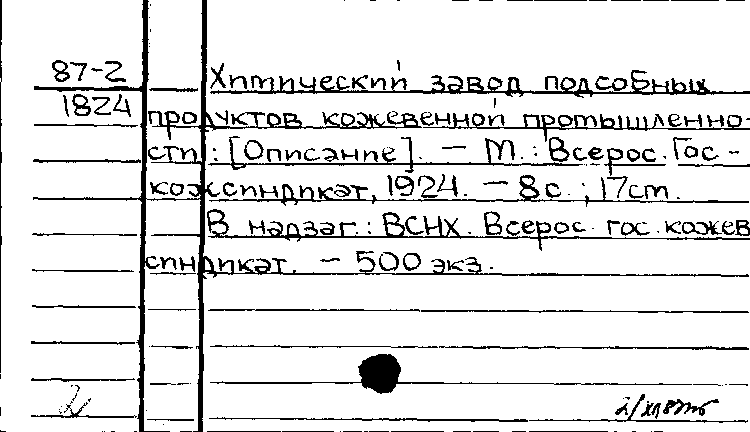 87-2 Химический завод подсобных
1824 продуктов кожевенной промышленно-
сти : [Описание]. — М. : Всерос. Гос-
кожсиндикат, 1924. — 8 с. ; 17 см.
В надзаг.: ВСНХ. Всерос. гос. кожев.
синдикат. — 500 экз.
2